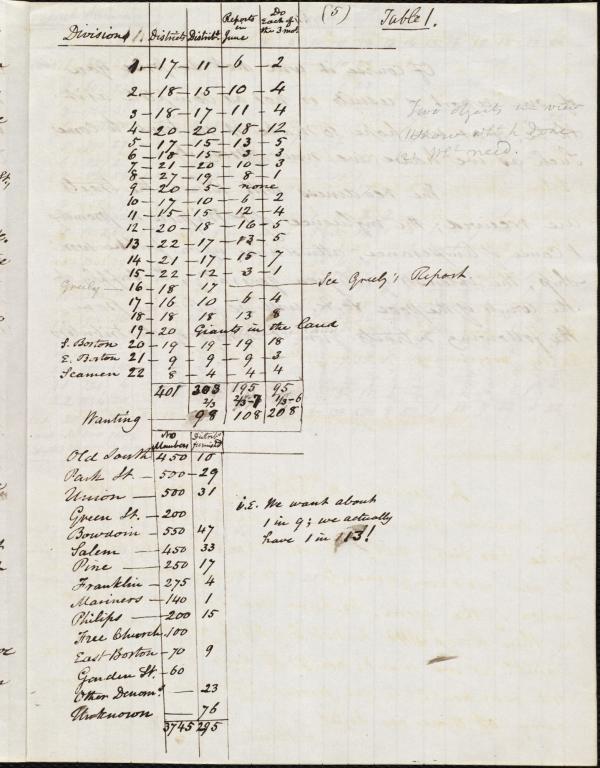 (5) Table 1.
Divisions. Districts Distribts. Reports in June Do Each of the 3 mos.
1. — 17 — 11 — 6 — 2
2. — 18 — 15 — 10 — 4
3 — 18 — 17 — 11 — 4
4 — 20 — 20 — 18 — 12
5 — 17 — 15 — 13 — 5
6 — 18 — 15 — 3 — 3
7 — 21 — 20 — 10 — 3
8 — 27 — 19 — 8 — 1
9 — 20 — 5 — none
10 — 17 — 10 — 6 — 2
11 — 15 — 15 — 12 — 4
12 — 20 — 18 — 16 — 5
13 — 22 — 17 — 13 — 5
14 — 21 — 17 — 15 — 7
15 — 22 — 12 — 3 — 1
Greely — 16 — 18 — 17 — See Greely's Report
17 — 16 — 10 — 6 — 4
18 — 18 — 18 — 13 — 8
19 — 20 Giants in the land
S. Boston 20 — 19 — 19 — 19 — 18
E. Boston 21 — 9 — 9 — 9 — 3
Seamen 22 — 8 — 4 — 4 — 4
401 303 195 95
2/3 2/3-7 1/3-6
Wanting — 98 108 208
No Members Distribs. furnished
Old South 450 10
Park St. — 500 — 29
Union — 500 31
Green St. — 200
Bowdoin — 550 47
Salem — 450 33
Pine — 250 17
Franklin — 275 4
Mariners — 140 1
Philips — 200 15
Free Church. 100
East Boston — 70 9
Garden St. — 60
Other Denoms. — 23
Unknown — 76
3745 295
i.E. We want about
1 in 9; we actually
have 1 in 113!
Two objects in view
need.